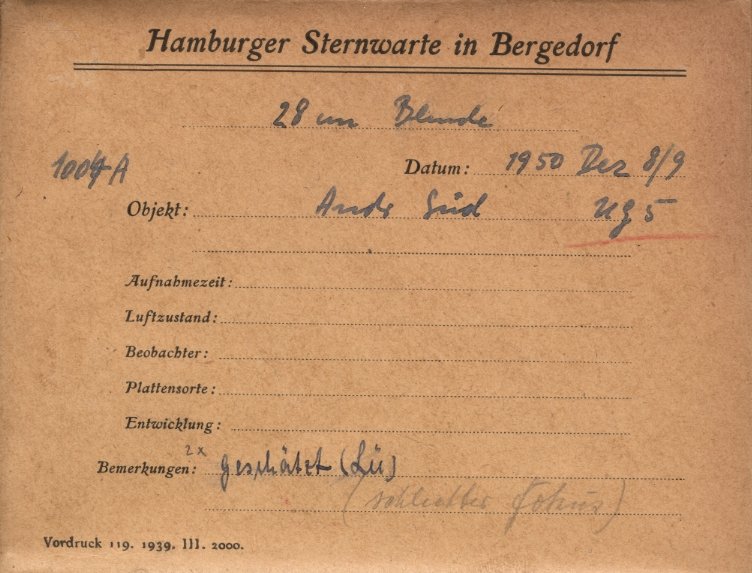 Hamburger Sternwarte in Bergedorf
28 cm Blende
1004 A
Datum: 1950 Dez 8/9
Objekt: Andr Süd UG 5
Aufnahmezeit:
Luftzustand:
Beobachter:
Plattensorte:
Entwicklung:
Bemerkungen: 2x geschätzt (Lü)
(schlechter Fokus)
Vordruck 119. 1939. III. 2000.